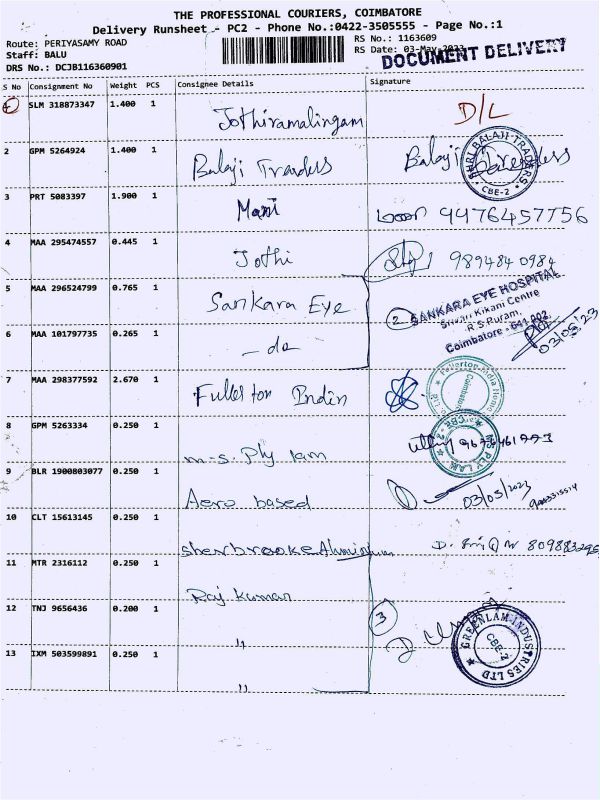 THE PROFESSIONAL COURIERS, COIMBATORE
Delivery Runsheet - PC2 - Phone No.:0422-3505555 - Page No.:1
Route: PERIYASAMY ROAD
Staff: BALU
DRS No.: DCJB116360901
RS No.: 1163609
RS Date: 03-May-2023
DOCUMENT DELIVERY
S No Consignment No Weight PCS Consignee Details Signature
1 SLM 318873347 1.400 1 Jothiramalingam D/L
2 GPM 5264924 1.400 1 Balaji Traders Balaji Traders
SHRI BALAJI TRADERS CBE-2
3 PRT 5083397 1.900 1 Mani 9976457756
4 MAA 295474557 0.445 1 Jothi 989484 0984
5 MAA 296524799 0.765 1 Sankara Eye
2 SANKARA EYE HOSPITAL
Kikani Centre
R.S.Puram,
Coimbatore - 641 002.
03/05/23
6 MAA 101797735 0.265 1 - do
7 MAA 298377592 2.670 1 Fullerton Indin
8 GPM 5263334 0.250 1 m.s. Ply lam
PLY LAM
9 BLR 1900803077 0.250 1 Aero based 03/05/2023
10 CLT 15613145 0.250 1 sherbrooke Aluminium
11 MTR 2316112 0.250 1 Raj Kumar
12 TNJ 9656436 0.200 1 " 3
GREENLAM INDUSTRIES LTD CBE-2
13 IXM 503599891 0.250 1 "